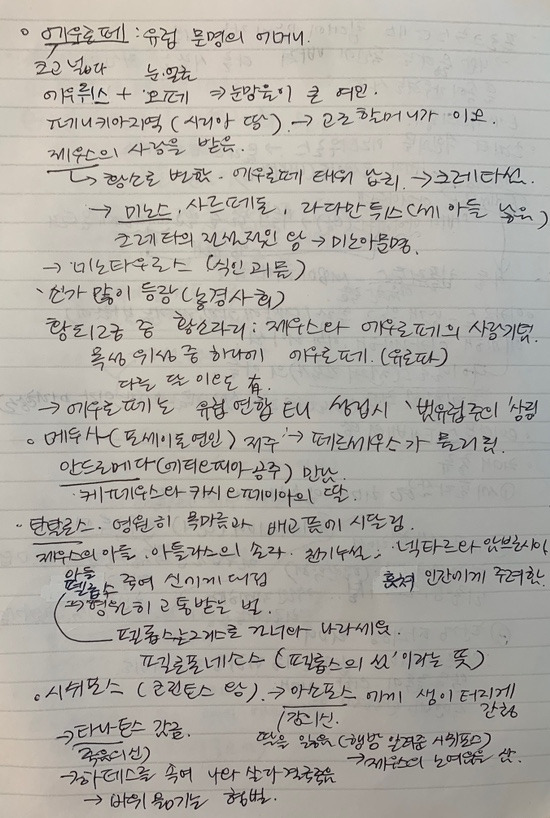 ◦ 에우로페 : 유럽 문명의 어머니.
크고 넓다 눈.얼굴
에우뤼스 + 오페 ⇒ 눈망울이 큰 여인.
페니키아지역 (시리아 땅). → 고조할머니가 이오
제우스의 사랑을 받음.
↳ 황소로 변함. 에우로페 태워 납치. → 크레타섬.
→ 미노스, 사르페돈, 라다만튀스 (세 아들 낳음)
크레타의 전설적인 왕 → 미노아문명.
→ 미노타우로스 (식인괴물)
소가 많이 등장 (농경사회)
황도12궁 중 황소자리 : 제우스와 에우로페의 사랑기념.
목성 위성 중 하나에 에우로페. (유로파)
다른 달 이오도 有.
→ 에우로페는 유럽연합 EU 성립시 '범유럽주의' 상징
◦ 메두사 (포세이돈 연인) 저주 → 페르세우스가 물리침.
안드로메다 (에티오피아 공주) 만남
케페우스와 카시오페이아의 딸.
· 탄탈로스. 영원히 목마름과 배고픔에 시달림.
제우스의 아들. 아틀라스의 손자. 천기누설, 넥타르와 암브로시아
아들 펠롭스 죽여 신에게 대접 훔쳐 인간에게 주려함.
⇒ 영원히 고통받는 벌.
펠롭스는 그리스로 건너와 나라세움.
펠로폰네소스 ('펠롭스의 섬'이라는 뜻)
◦ 시쉬포스 (코린토스 왕). → 아소포스에게 샘이 터지게 간청
(강의신.
→ 타나토스 갔음. 딸을 잃음 (행방 알려준 시쉬포스)
죽음의신) → 제우스의 노여움을 삼.
→ 하데스를 속여 나와 살다 결국죽음
→ 바위 옮기는 형벌.